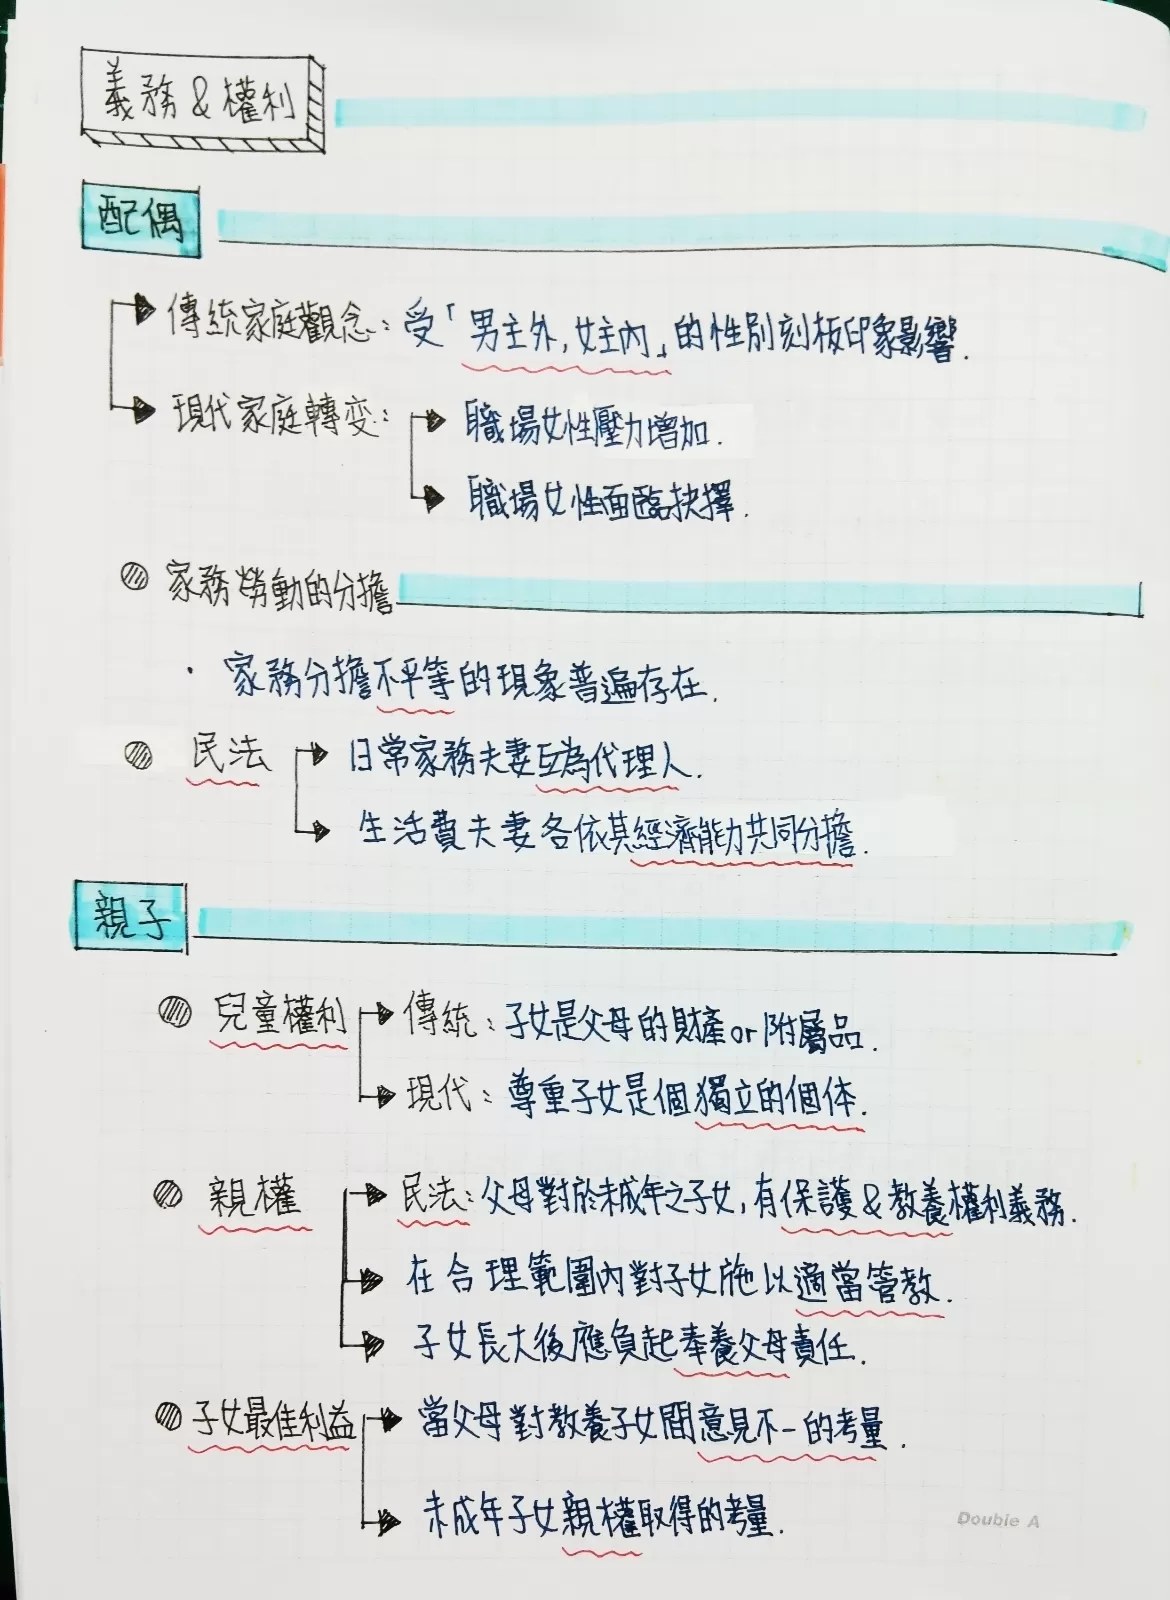 義務&權利
配偶
傳統家庭觀念:受「男主外,女主內」的性別刻板印象影響.
現代家庭轉变:
職場女性壓力增加.
職場女性面臨抉擇.
家務勞動的分擔
·家務分擔不平等的現象普遍存在.
民法
日常家務夫妻互為代理人.
生活費夫妻各依其經濟能力共同分擔.
親子
兒童權利
傳統:子女是父母的財產or附屬品.
現代:尊重子女是個獨立的個体.
親權
民法:父母對於未成年之子女,有保護&教養權利義務.
在合理範圍內對子女施以適當管教.
子女長大後應負起奉養父母責任.
子女最佳利益
當父母對教養子女間意見不一的考量.
未成年子女親權取得的考量.
Double A